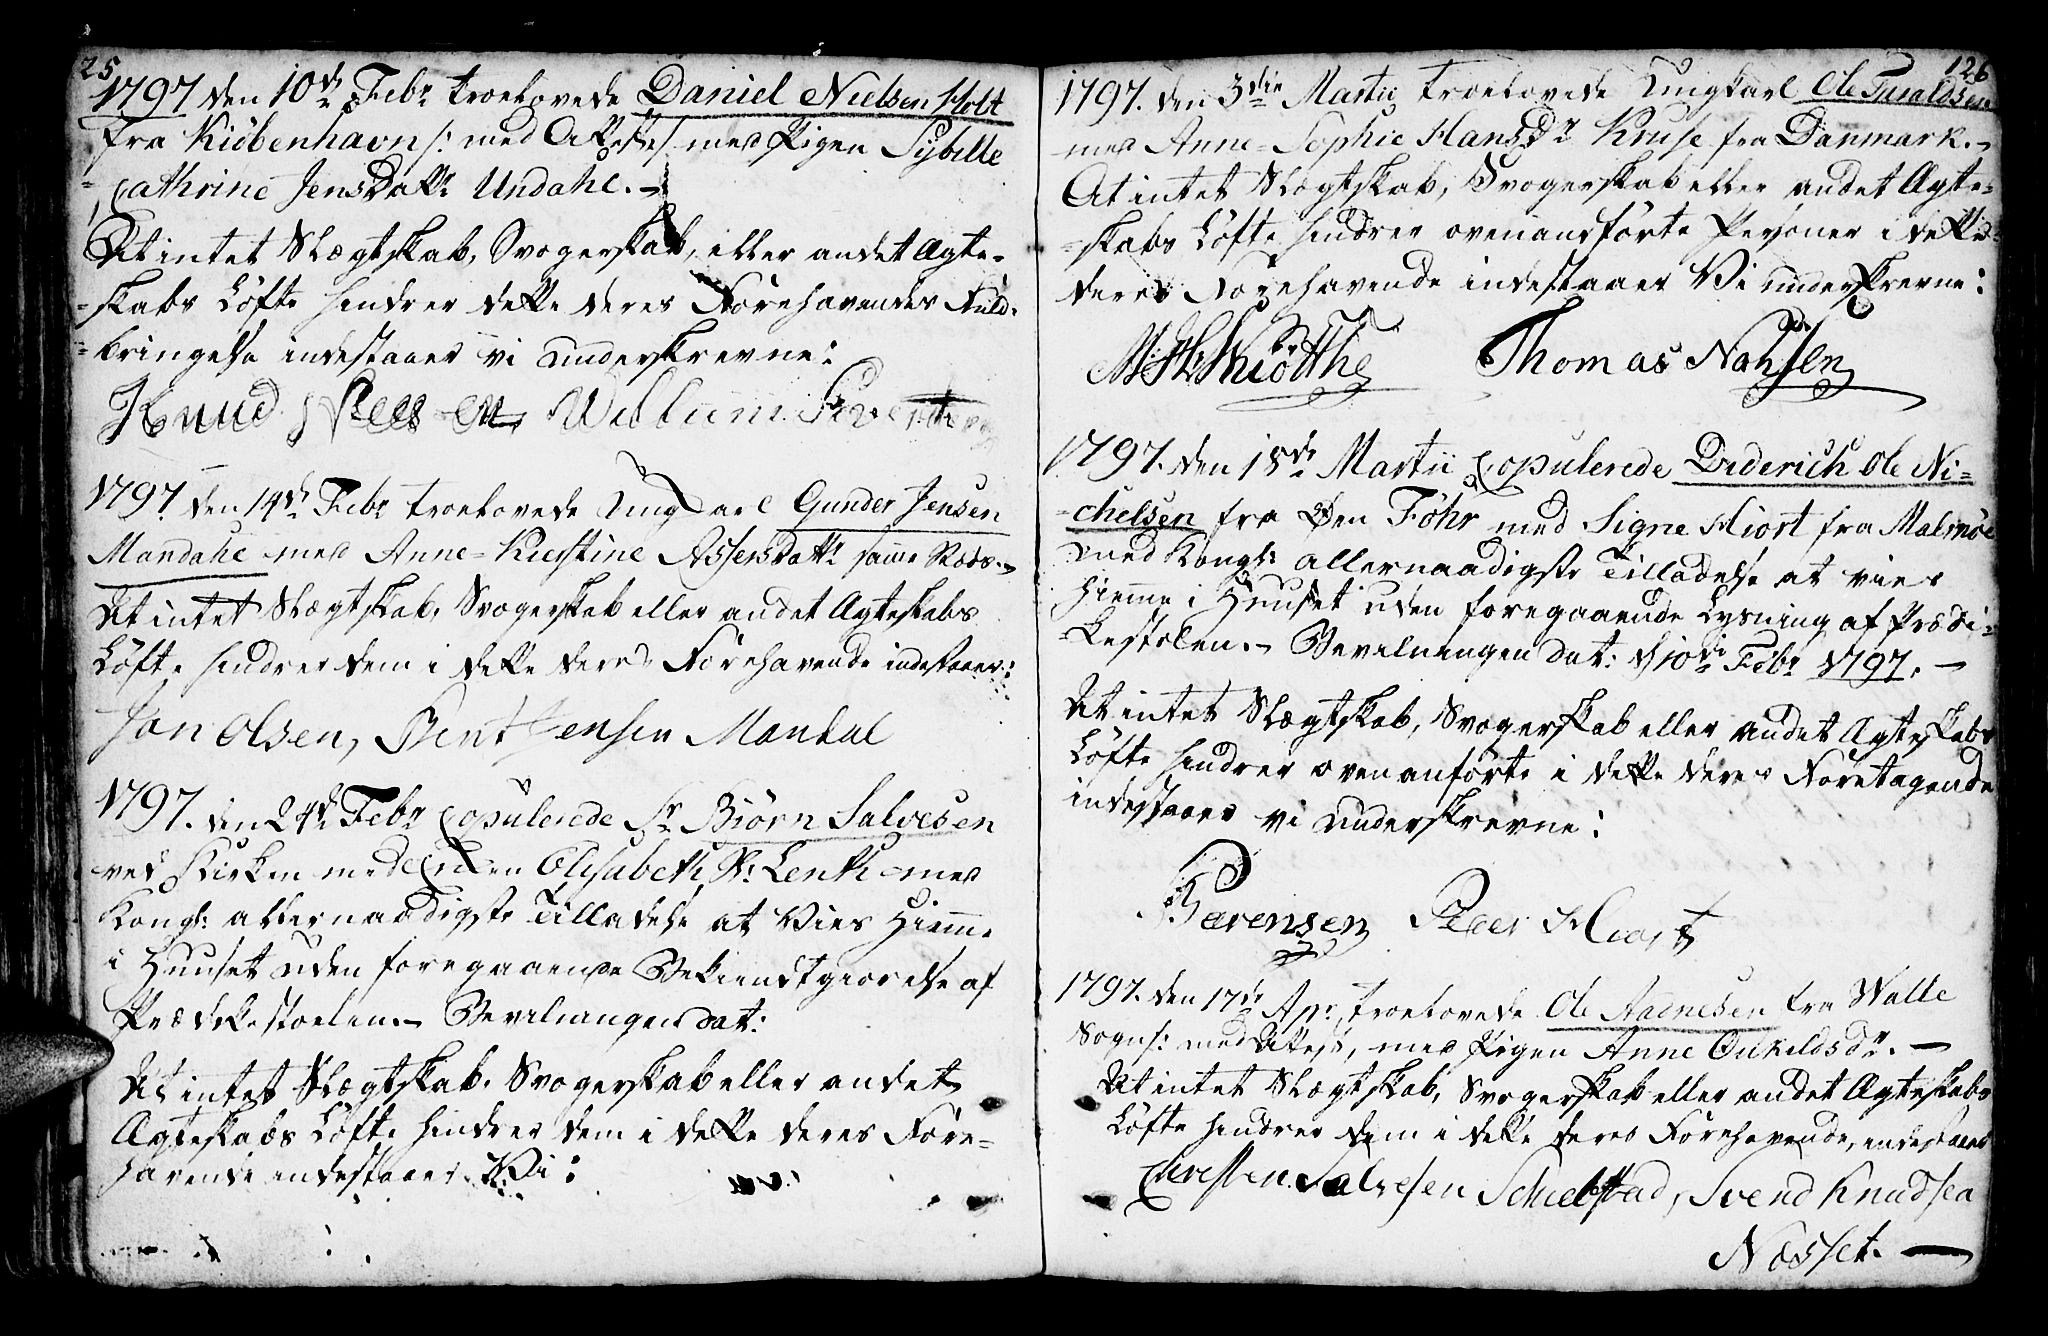 25
1797 den 10de Febr. troelovede Daniel Nielsen Holt
fra Kiöbenhavn /: med Attest :/ med Pigen Sÿbille
Cathrine Jensdattr Undahl. –
At intet Slægtskab, Svogerskab, eller andet Ægte-
-skabs Löfte hindrer dette deres Forehavendes Fuld-
-bringelse indestaaer vi underskrevne:
Knud Nielsen Willum Sivertsen
1797 den 14de Febr troelovede Ungkarl Gunder Jensen
Mandahl med Anne-Kirstine Assersdattr samme Stæds. –
At intet Slægtskab, Svogerskab eller andet Ægteskabs
Löfte hindrer dem i dette deres Forehavende indestaaer:
Jan Olsen, Bent Jensen Mandal
1797. den 24de Febr Copulerede Sr Biörn Salvesen
ved Kirken med Enken Elisabeth Lenth med
Kongl: allernaadigste Tilladelse at Vies Hiemme
i Huuset uden foregaaende Bekiendtgiörelse af
Prædikestoelen. – Bevilningen dat:
At intet Slægtskab, Svogerskab eller andet
Ægteskabs Löfte hindrer dem i dette deres Fore-
havende indestaaer Vi:
126
1797. den 3die Martii troelovede Ungkarl Ole Tweldsen
med Anne-Sophie Hansdr Kruse fra Danmark. –
At intet Slægtskab, Svogerskab eller andet Ægte-
-skabs Löfte hindrer ovenanförte Personer i dette
deres Forehavende indestaaer Vi underskrevne:
Thomas Nansen
1797. den 15de Martii Copulerede Diderich Ole Ni-
-chelsen fra Øen Föhr med Signe Hiort fra Malmöe
med Kongl: allernaadigste Tilladelse at vies
Hiemme i Huuset uden foregaaende Lysning af Prædi-
-kestolen. – Bevilningen dat: d 10de Febr 1797. –
At intet Slægtskab, Svogerskab eller andet Ægteskabs
Löfte hindrer ovenanförte i dette deres Foretagende
indestaaer vi underskrevne:
Sörensen Peter Hiort
1797. den 17de Apr. troelovede Ole Aadnesen fra Walle
Sogn /: med Attest, med Pigen Anne Önkildsdr. –
At intet Slægtskab, Svogerskab eller andet Ægteskabs
Löfte hindrer dem i dette deres Forehavende, indestaaer
Christen Salvesen Schielstad, Svend Knudsen
Nösset. –